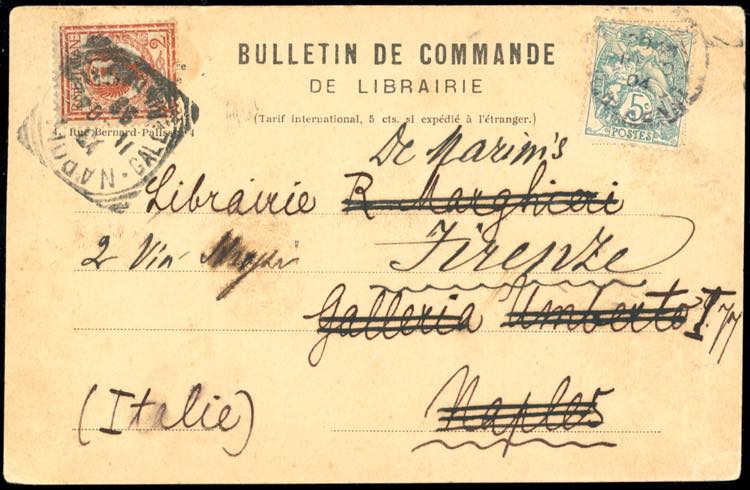 BULLETIN DE COMMANDE
DE LIBRAIRIE
(Tarif international, 5 cts. si expédié à l'étranger.)
4, Rue Bernard-Palissy, 4
5c
POSTES
04
De Marinis
Librairie R Marghieri
2 Via
Firenze
Galleria Umberto I 77
(Italie)
Naples